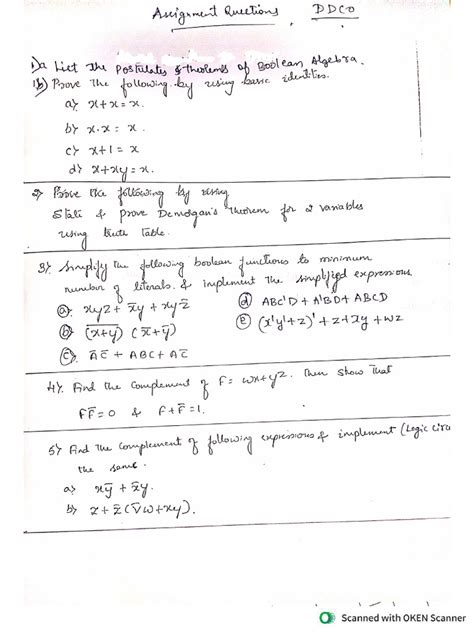 Assignment Questions DDCO
1)a List the Postulates & theorems of Boolean Algebra.
1b) Prove the following by using basic identities.
a) x+x=x.
b) x.x = x.
c) x+1 = x
d) x+xy=x.
2) Prove the following by using
State & prove Demorgan's theorem for 2 variables
using truth table.
3). Simplify the following boolean functions to minimum
number of literals. & implement the simplified expressions
(a). xyz + x̅y + xyz̅ (d) ABC'D + A'BD + ABCD
(b) (x+y)̅ (x̅+y̅) (e) (x'y'+z)' + z + xy + wz
(c). A̅C̅ + ABC + AC̅
4). Find the complement of F = wx+yz. Then show that
FF̅=0 & F+F̅=1.
5) Find the complement of following expressions & implement (Logic circu
the same.
a) xy̅ + x̅y.
b) z + z̅(v̅w+xy).
Scanned with OKEN Scanner